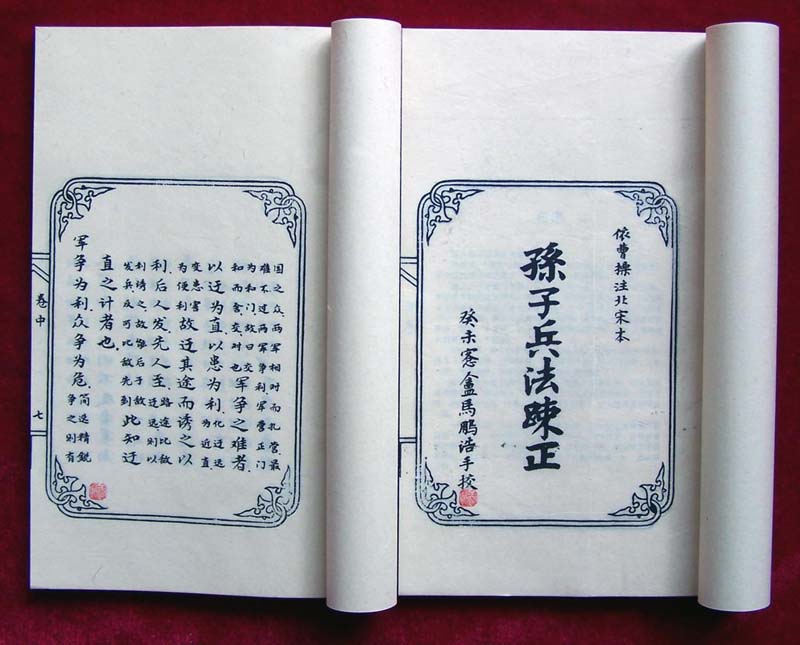 依曹操注北宋本
孫子兵法踈正
癸未愙盦馬鵬浩手校
国之众,两军相对而扎营,最
难不过两军争利,军营正门
为和门,故曰交
和而舍,交,对也
军争之难者,
以迂为直,以患为利,
化迂远
为近直,
变患害
为便利
故迂其途而诱之以
利后人发,先人至,
路途比敌
迂远,则以
利诱之,故惟后于敌
发兵,反可比敌先到
此知迂
直之计者也
军争为利,众争为危,
简选精锐
争之则有
卷中
七